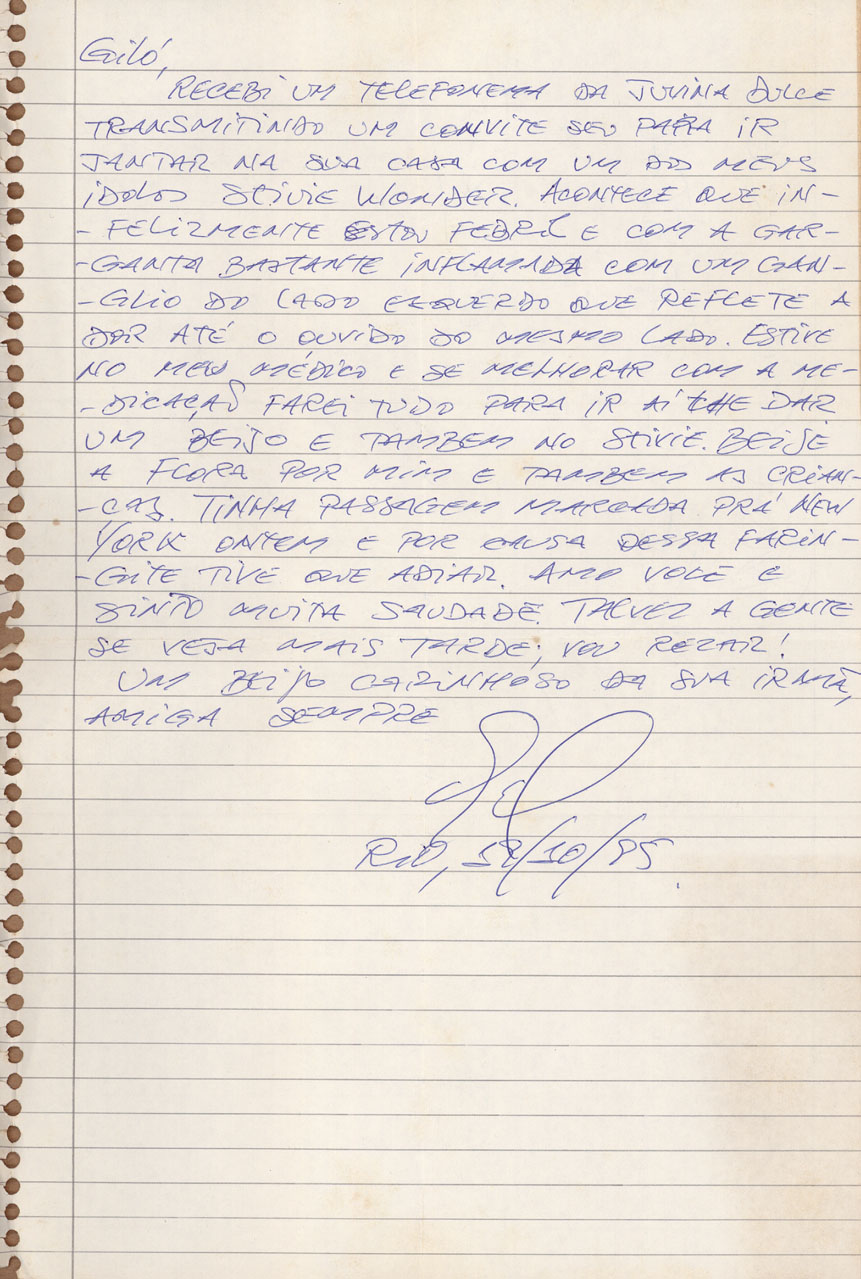 Giló,
RECEBI UM TELEFONEMA DA JUVINA DULCE
TRANSMITINDO UM CONVITE SEU PARA IR
JANTAR NA SUA CASA COM UM DOS MEUS
IDOLOS STIVIE WONDER. ACONTECE QUE IN-
-FELIZMENTE ESTOU FEBRIL E COM A GAR-
-GANTA BASTANTE INFLAMADA COM UM GAN-
-GLIO DO LADO ESQUERDO QUE REFLETE A
DOR ATÉ O OUVIDO DO MESMO LADO. ESTIVE
NO MEU MÉDICO E SE MELHORAR COM A ME-
-DICAÇÃO FAREI TUDO PARA IR AÍ LHE DAR
UM BEIJO E TAMBEM NO STIVIE. BEIJE
A FLORA POR MIM E TAMBEM AS CRIAN-
-ÇAS. TINHA PASSAGEM MARCADA PRÁ NEW
YORK ONTEM E POR CAUSA DESSA FARIN-
-GITE TIVE QUE ADIAR. AMO VOCE E
SINTO MUITA SAUDADE. TALVEZ A GENTE
SE VEJA MAIS TARDE; VOU REZAR!
UM BEIJO CARINHOSO DA SUA IRMÃ,
AMIGA SEMPRE
RIO, /10/95.